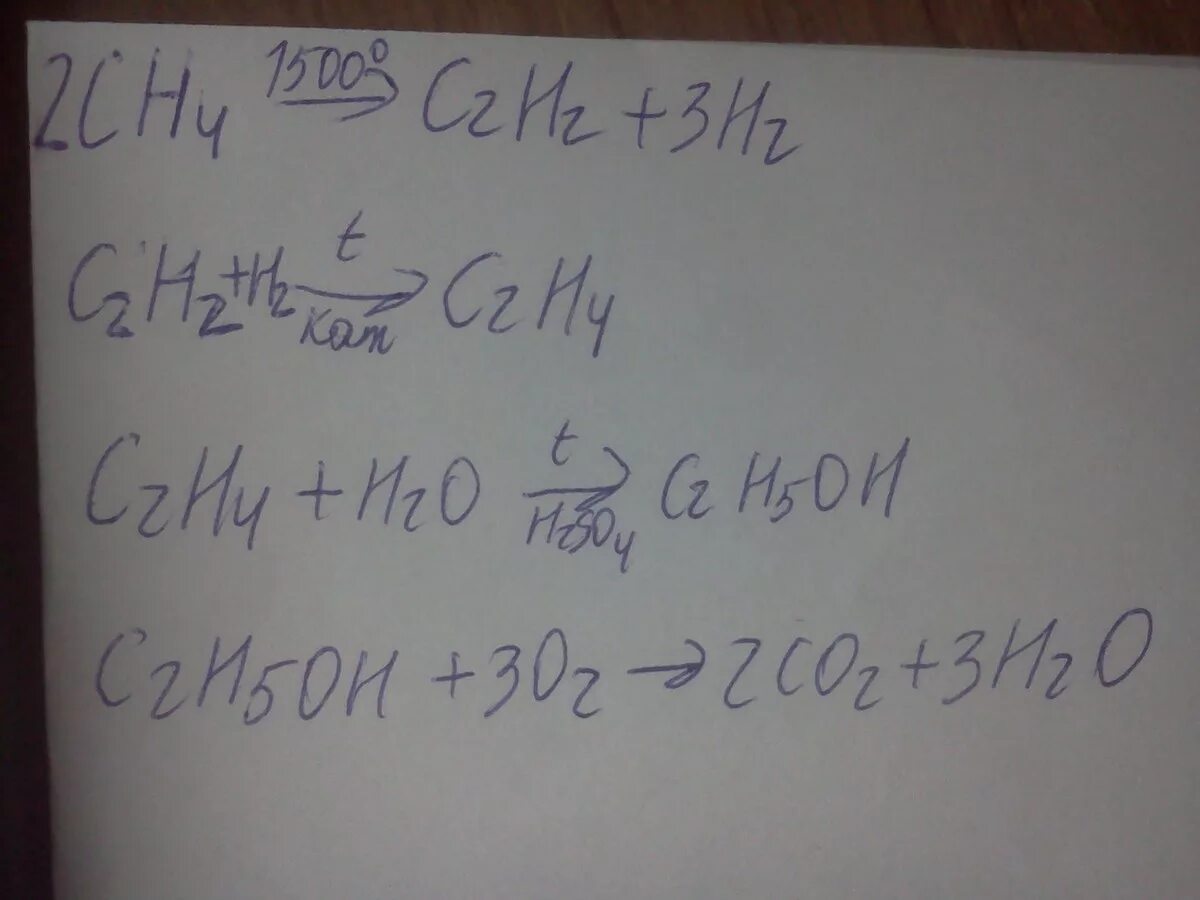 2CH₄ 1500° → C₂H₂ + 3H₂
C₂H₂ + H₂ t → кат C₂H₄
C₂H₄ + H₂O t → H₂SO₄ C₂H₅OH
C₂H₅OH + 3O₂ → 2CO₂ + 3H₂O